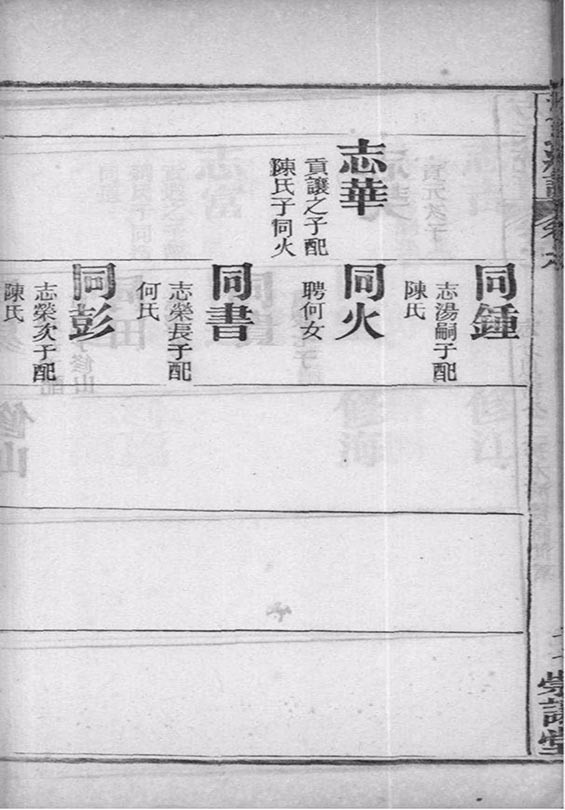 志華
貢讓之子配
陳氏子同火
同鍾
志湯嗣子配
陳氏
同火
聘何女
同書
志榮長子配
何氏
同彭
志榮次子配
陳氏